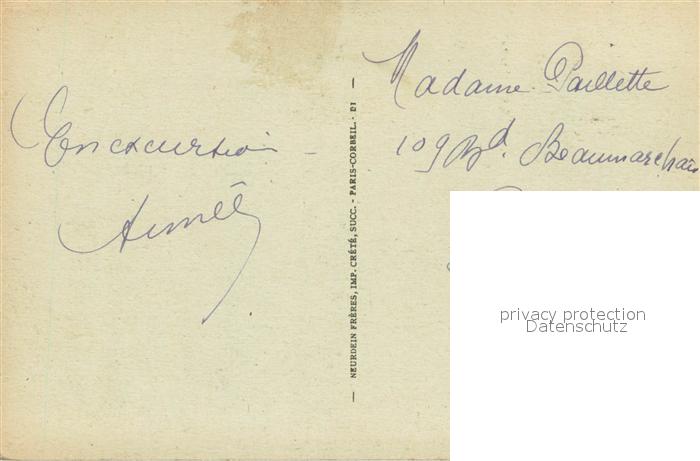 En excursion -
Aimée
— NEURDEIN FRÈRES, IMP. CRÉTÉ, SUCC. - PARIS-CORBEIL. - D1 —
Madame Paillette
109 Bd. Beaumarchais
privacy protection
Datenschutz